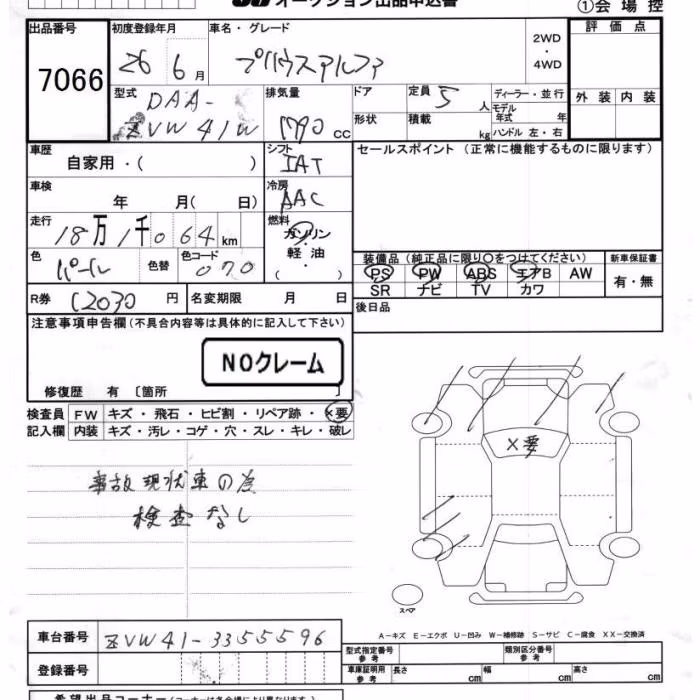 オークション出品申込書
①会場控
出品番号 初度登録年月 車名・グレード 評価点
7066 26 6月 プリウスアルファ 2WD・4WD
型式 排気量 ドア 定員 5人 ディーラー・並行 外装 内装
DAA-ZVW41W 1790cc 形状 積載 kg モデル年式 年 ハンドル 左・右
車歴 シフト セールスポイント（正常に機能するものに限ります）
自家用・（ ） IAT
車検 冷房
年 月（ 日） AAC
走行 燃料
18万1千064km ガソリン・軽油・（ ）
色 色替 色コード 装備品（純正品に限り○をつけてください） 新車保証書
パール 070 PS PW ABS エアB AW 有・無
SR ナビ TV カワ
R券 12030円 名変期限 月 日 後日品
注意事項申告欄（不具合内容等は具体的に記入して下さい）
NOクレーム
修復歴 有〔箇所 〕
検査員 FW キズ・飛石・ヒビ割・リペア跡・×要
記入欄 内装 キズ・汚レ・コゲ・穴・スレ・キレ・破レ
×要
事故現状車の為
検査なし
スペア
A－キズ E－エクボ U－凹み W－補修跡 S－サビ C－腐食 XX－交換済
車台番号 ZVW41-3355596 型式指定番号 参考 類別区分番号 参考
登録番号 車庫証明用 参考 長さ cm 幅 cm 高さ cm
希望出品コーナー（コーナーは各会場により異なります）